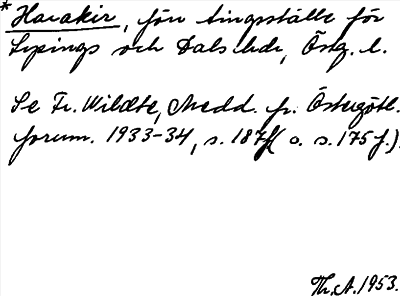 * Harakir, förr tingsställe för
Lysings och Dals hdr, Östg. l.
Se Fr. Wildte, Medd. fr. Östergötl.
fornm. 1933-34, s. 187 f( o. s. 175 f.).
Th. A. 1953.